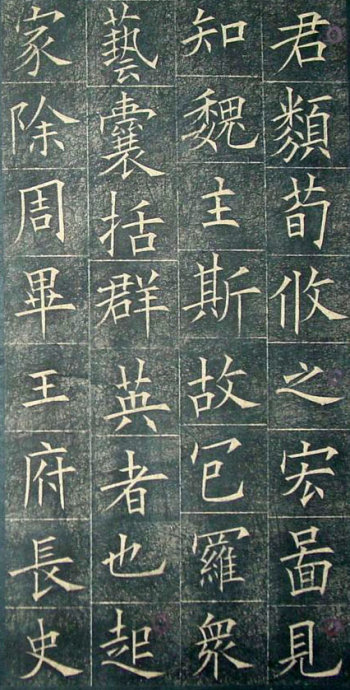 君類荀攸之宏啚見
知魏主斯故包羅眾
藝囊括群英者也起
家除周畢王府長史